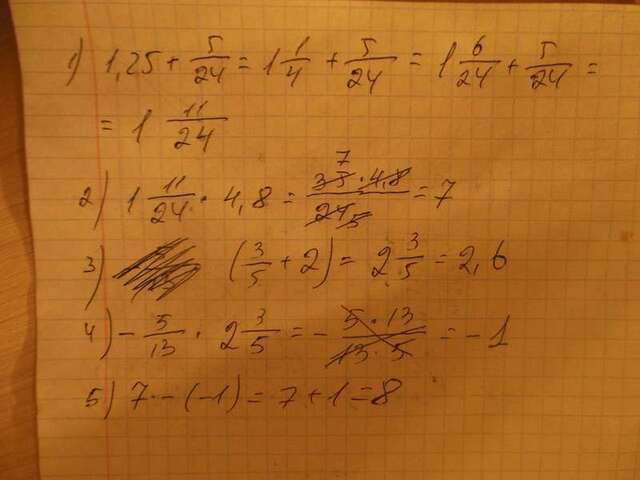 1) 1,25 + 5/24 = 1 1/4 + 5/24 = 1 6/24 + 5/24 =
= 1 11/24
2) 1 11/24 · 4,8 = 7 35 · 4,8 / 24 5 = 7
3) (3/5 + 2) = 2 3/5 = 2,6
4) - 5/13 · 2 3/5 = - 5 · 13 / 13 · 5 = - 1
5) 7 - (-1) = 7 + 1 = 8